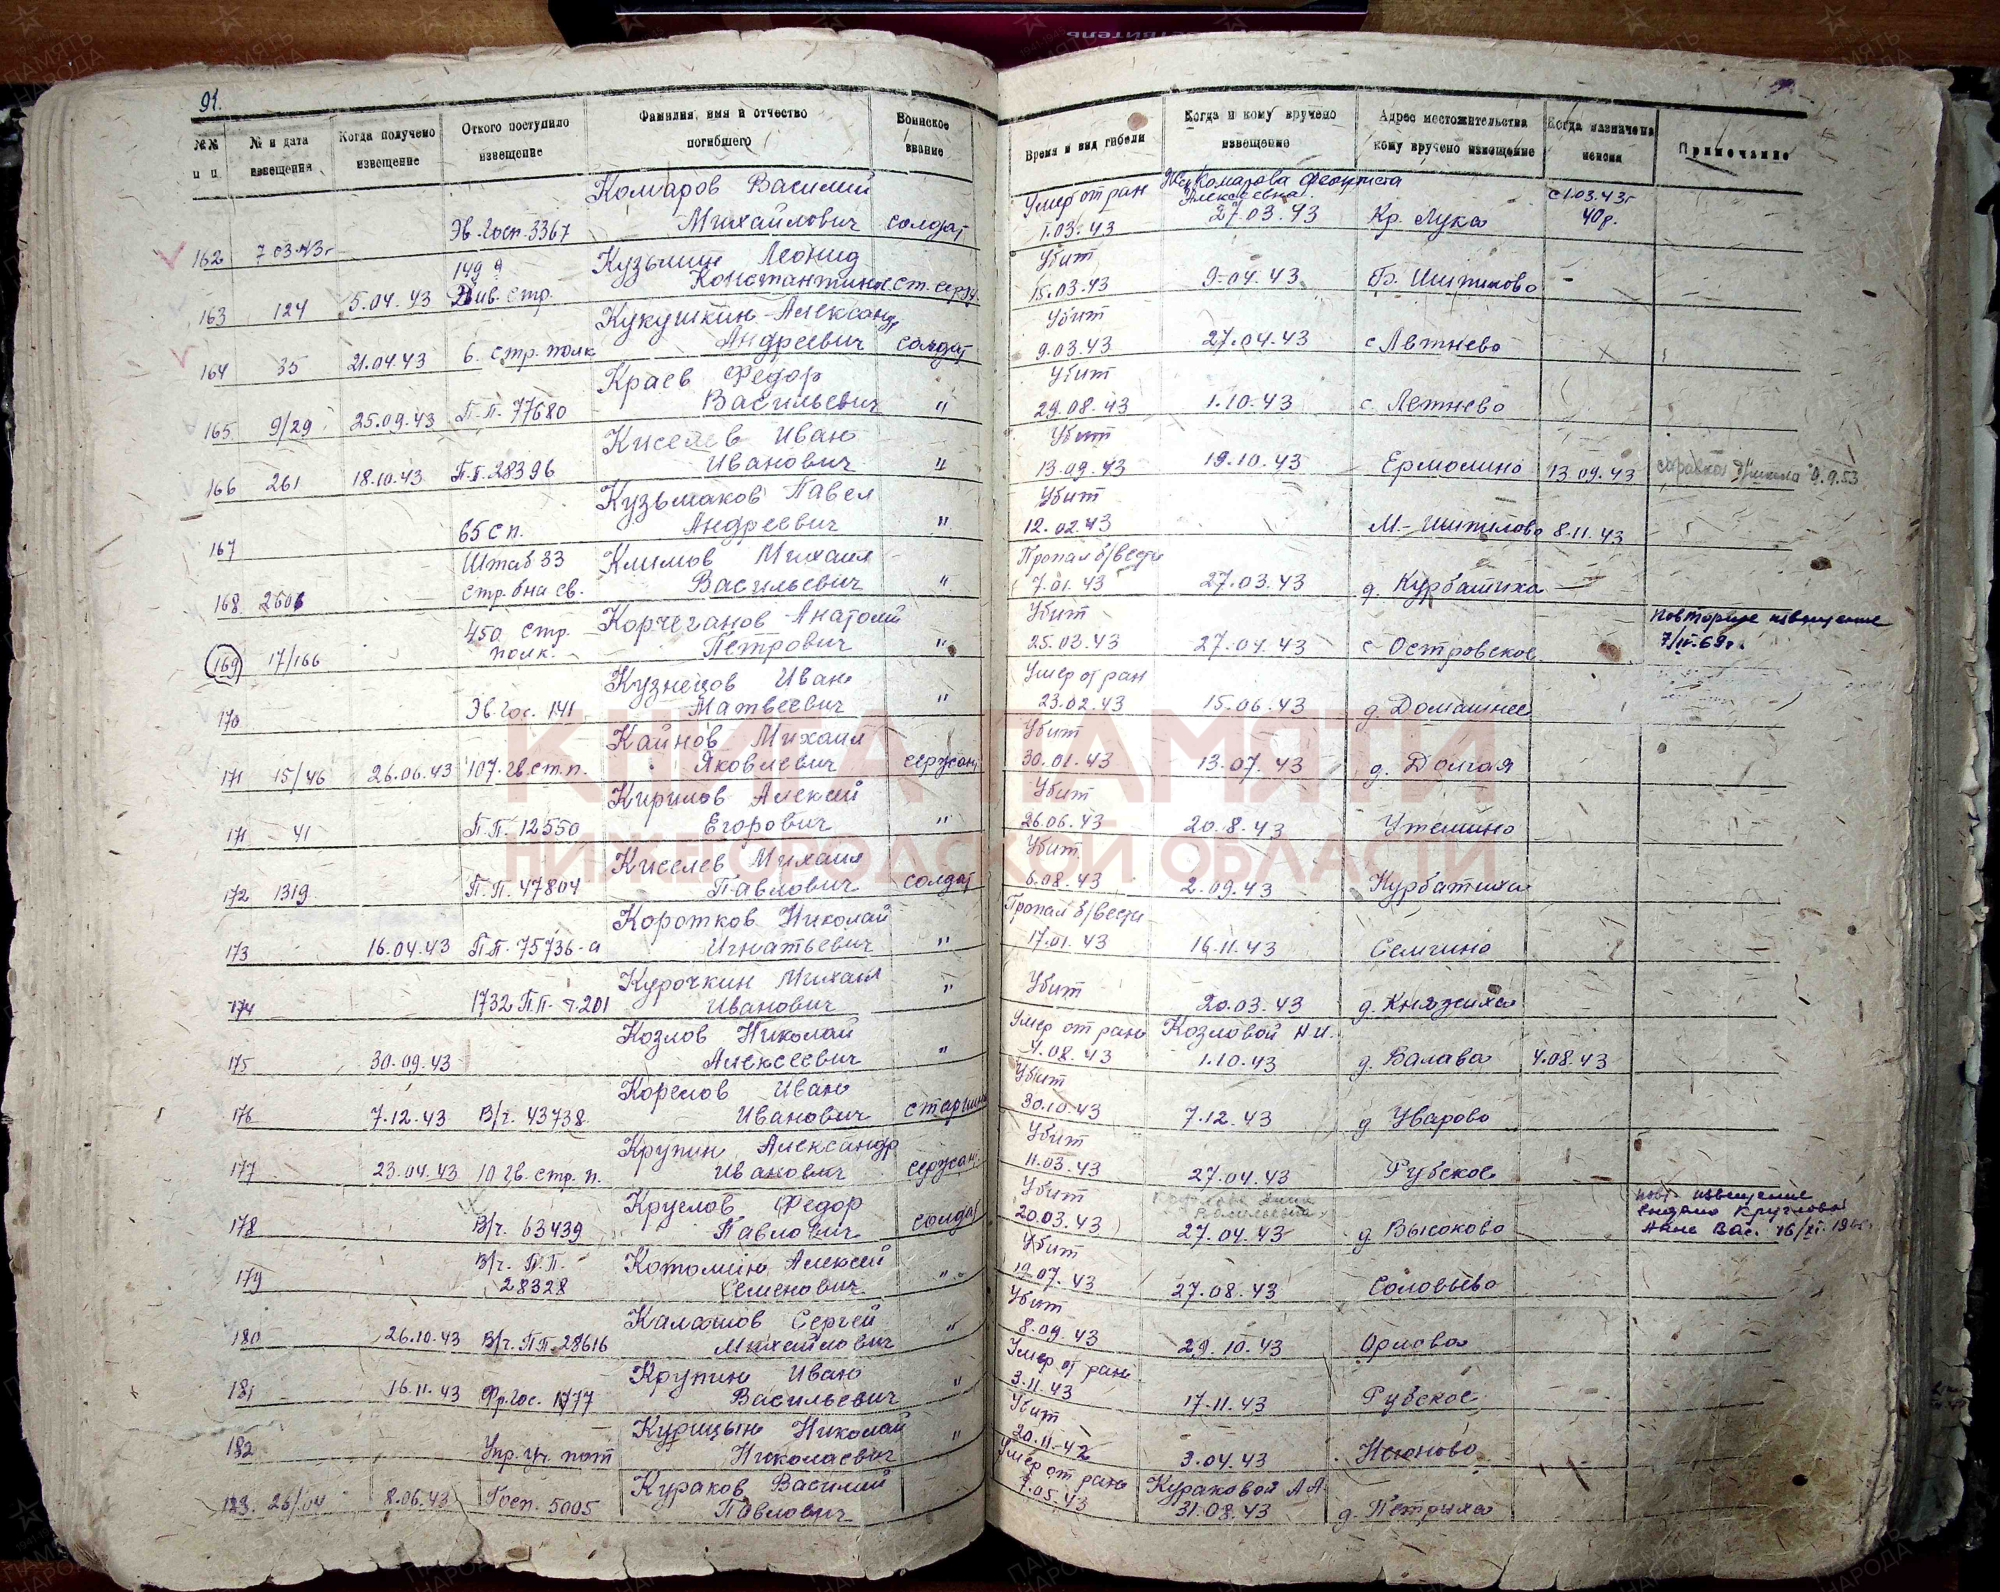 91.
№№ п п | № и дата извещения | Когда получено извещение | Откого поступило извещение | Фамилия, имя и отчество погибшего | Воинское звание | Время и вид гибели | Когда и кому вручено извещение | Адрес местожительства кому вручено извещение | Когда назначена пенсия | Примечание
162 | 7 03.43г | Эв. Госп. 3367 | Комаров Василий Михайлович | солдат | Умер от ран 1.03.43 | Комарова Феоктиста Алексеевна 27.03.43 | Кр. Лука | с 1.03.43г 40 р.
163 | 124 | 5.04.43 | 149 Див. стр. | Кузьмин Леонид Константинов | ст. серж. | Убит 15.03.43 | 9-04.43 | Б. Шипилово | -
164 | 35 | 21.04.43 | 6. стр. полк | Кукушкин Александр Андреевич | солдат | Убит 9.03.43 | 27.04.43 | с Летнево
165 | 9/29 | 25.09.43 | П.П. 77680 | Краев Федор Васильевич | " | Убит 29.08.43 | 1.10.43 | с. Летнево
166 | 261 | 18.10.43 | П.П. 28396 | Киселев Иван Иванович | " | Убит 13.09.43 | 19.10.43 | Ермолино | 13.09.43 | справка 9.9.53
167 | 65 с п. | Кузьмаков Павел Андреевич | " | Убит 12.02.43 | М.-Шипилово | 8.11.43
168. | 2606 | Штаб 33 стр. бна св. | Климов Михаил Васильевич | " | Пропал б/вести 7.01.43 | 27.03.43 | д. Курбатиха
169 | 17/166 | 450 стр. полк. | Корчеганов Анатолий Петрович | " | Убит 25.03.43 | 27.04.43 | с Островское | повторное извещение 7/IV.69г.
170 | Эв. Гос. 141 | Кузнецов Иван Матвеевич | " | Умер от ран 23.02.43 | 15.06.43 | д. Домашнее
171 | 15/46 | 26.06.43 | 107. гв. ст. п. | Каинов Михаил Яковлевич | сержант | Убит 30.01.43 | 13.07.43 | д. Долгая
171 | 41 | П.П. 12550 | Кирилов Алексей Егорович | " | Убит 26.06.43 | 20.8.43 | Утешино
172 | 1319 | П.П. 47804 | Киселев Михаил Павлович | солдат | Убит 6.08.43 | 2.09.43 | Курбатиха
173 | 16.04.43 | П.П. 75736-а | Коротков Николай Игнатьевич | " | Пропал б/вести 17.01.43 | 16.11.43 | Семгино
174 | 1732 П.П. ч.201 | Курочкин Михаил Иванович | " | Убит | 20.03.43 | д. Княжиха
175 | 30.09.43 | Козлов Николай Алексеевич | " | Умер от ран 4.08.43 | Козловой Н И. 1.10.43 | д. Валава | 4.08.43
176 | 7.12.43 | В/ч. 43738. | Корелов Иван Иванович | старшина | Убит 30.10.43 | 7.12.43 | д Уварово
177 | 23.04.43 | 10 гв. стр. п. | Крупин Александр Иванович | сержант | Убит 11.03.43 | 27.04.43 | Рубское
178 | В/ч. 63439 | Круглов Федор Павлович | солдат | Убит 20.03.43 | 27.04.43 | д Высоково | повт. извещение выдано Кругловой Анне Вас. 16/XI.
179 | В/ч. П.П. 28328 | Котомин Алексей Семенович | " | Убит 19.07.43 | 27.08.43 | Соловьево
180 | 26.10.43 | В/ч. П.П. 28616 | Калашов Сергей Михайлович | " | Убит 8.09.43 | 29.10.43 | Орлова
181 | 16.11.43 | Фр. гос. 1777 | Крупин Иван Васильевич | " | Умер от ран 3.11.43 | 17.11.43 | Рубское
182 | Упр. уч. пот | Курицын Николай Николаевич | " | Убит 20.11.42 | 3.04.43 | Исюново
183. | 26/04 | 8.06.43 | Госп. 5005 | Кураков Василий Павлович | Умер от ран 7.05.43 | Кураковой А А 31.08.43 | д. Петриха
КНИГА ПАМЯТИ
НИЖЕГОРОДСКОЙ ОБЛАСТИ
ПАМЯТЬ НАРОДА